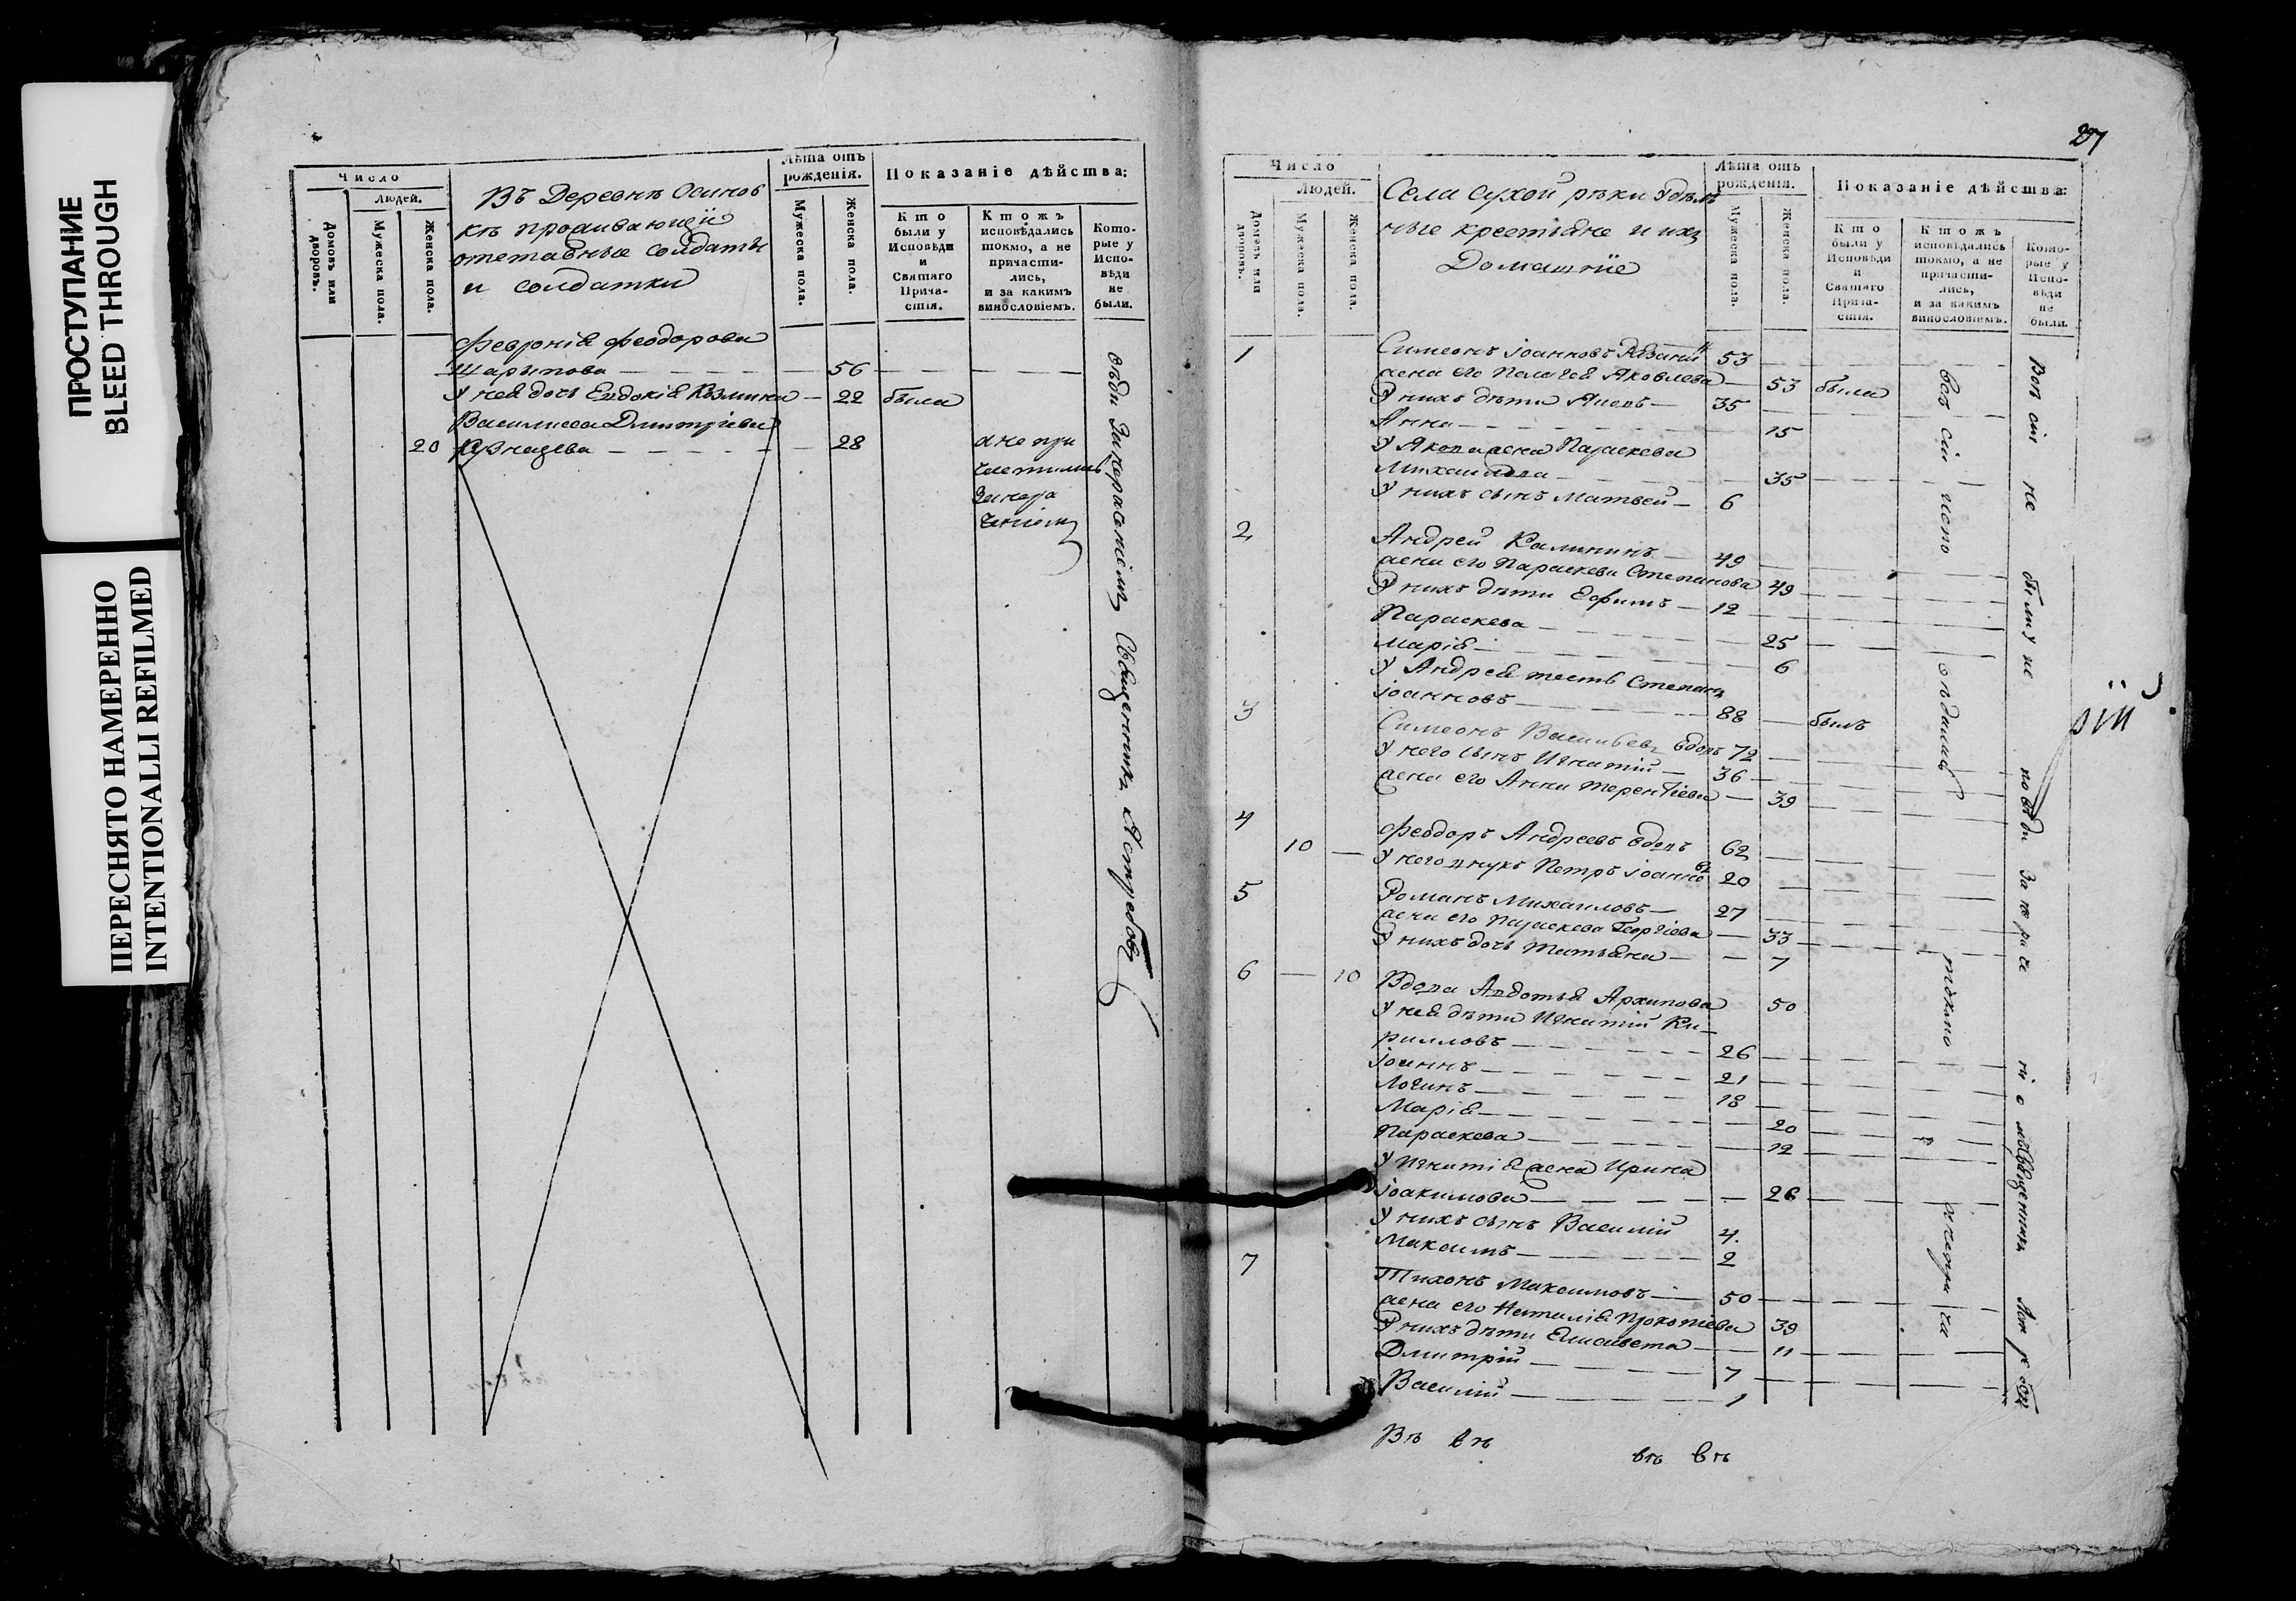 ПРОСТУПАНИЕ
BLEED THROUGH
ПЕРЕСНЯТО НАМЕРЕННО
INTENTIONALLI REFILMED
Число
Людей.
Домовъ или дворовъ.
Мужеска пола.
Женска пола.
Въ Деревнѣ Осинов
кѣ проживающїи
отставные солдаты
и солдатки
Лѣта отъ рожденія.
Мужеска пола.
Женска пола.
Показаніе дѣйства:
Кто были у Исповѣди и Святаго Прича-стія.
Ктожъ исповѣдались токмо, а не причасти-лись, и за какимъ винословіемъ.
Кото-рые у Испо-вѣди не были.
Феврония Феодорова
Шарыпова — 56
У нея дочь Евдокія Козмина — 22 была
Василиса Дмитріева
20 — 28 а не при
частились
за нера
ченіем
Священникъ Ястребовъ
27
Число
Людей.
Домовъ или дворовъ.
Мужеска пола.
Женска пола.
Села сухой рѣки удѣль
ные крестьяне и ихъ
Домашніе
Лѣта отъ рожденія.
Мужеска пола.
Женска пола.
Показаніе дѣйства:
Кто были у Исповѣди и Святаго Прича-стія.
Ктожъ исповѣдались токмо, а не причасти-лись, и за какимъ винословіемъ.
Кото-рые у Испо-вѣди не были.
1 Симеонъ Іоанновъ 53
жена его Пелагея Яковлева — 53 была
У нихъ дѣти Яковъ — 35
Анна — 15
У Якова жена Параскева
Михаилова — 35
У нихъ сынъ Матвей — 6
2 Андрей Калининъ — 49
жена его Параскева Степанова 49
У нихъ дѣти Ефимъ — 12
Параскева — 25
Марія — 6
У Андрея тесть Степанъ
Іоанновъ — 88 — былъ
3 Симеонъ Васильевъ вдовъ 72
У него сынъ Игнатій — 36
жена его Анна Терентіева — 39
4 Феодоръ Андреевъ вдовъ 62
10 — У него внукъ Петръ Іоанновъ 20
5 Романъ Михаиловъ — 27
жена его Параскева Георгіева — 33
У нихъ дочь Татьяна — 7
6 — 10 Вдова Авдотья Архипова 50
У нея дѣти Игнатій Ки-
рилловъ — 26
Іоаннъ — 21
Логинъ — 18
Марія — 20
Параскева — 12
У Игнатія жена Ирина
Іоакимова — 26
У нихъ сынъ Василій 4.
Максимъ — 2
7 Тихонъ Максимовъ — 50
жена его Наталія Прокопіева 39
У нихъ дѣти Елисавета — 11
Дмитрій — 7
Василій — 1
Всѣ сіи исповѣдались токмо а не прича
Всѣ сіи не были у исповѣди за нераченіемъ Священникъ Ястребовъ
сій
Въ въ въ въ